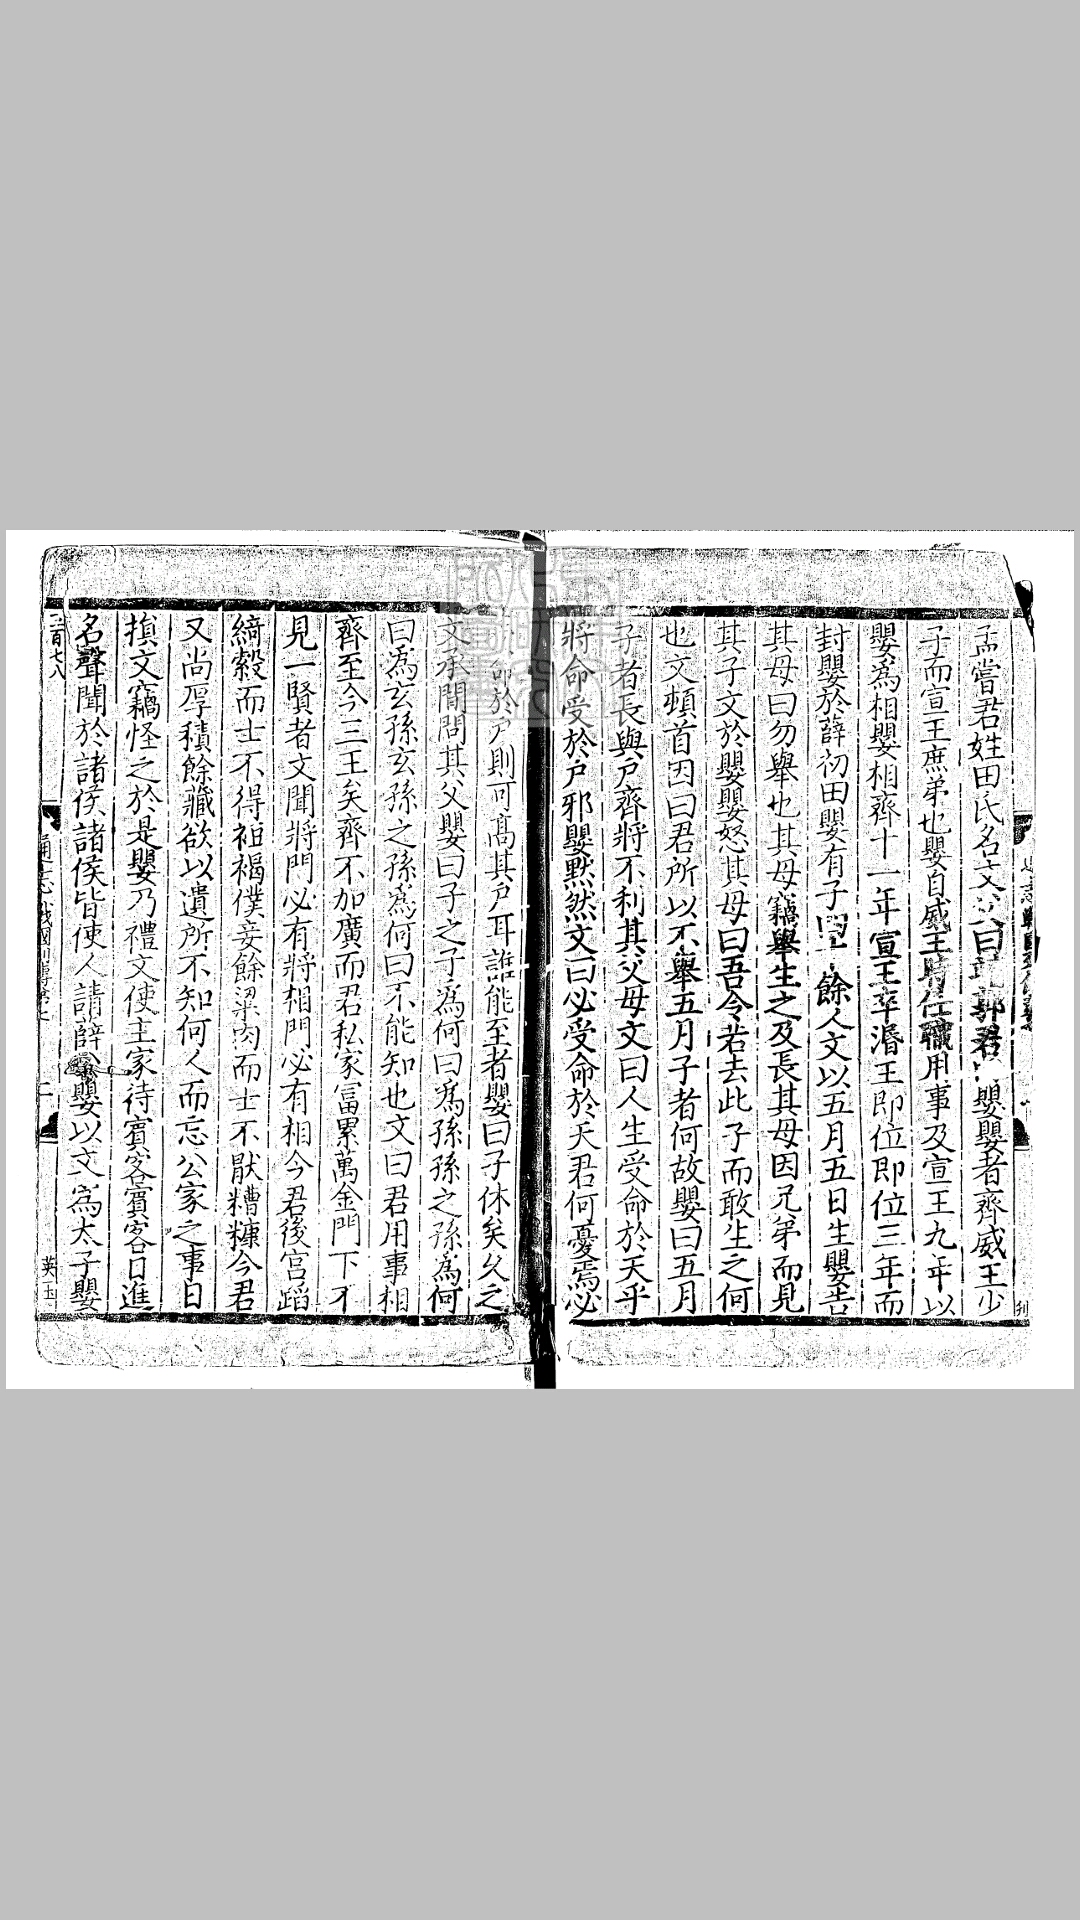 孟嘗君姓田氏名文父曰郭君嬰嬰者齊威王少
子而宣王庶弟也嬰自威王時任職用事及宣王九年以
嬰為相嬰相齊十一年宣王卒湣王即位即位三年而
封嬰於薛初田嬰有子四十餘人文以五月五日生嬰告
其母曰勿舉也其母竊舉生之及長其母因兄弟而見
其子文於嬰嬰怒其母曰吾令若去此子而敢生之何
也文頓首因曰君所以不舉五月子者何故嬰曰五月
子者長與戶齊將不利其父母文曰人生受命於天乎
將命受於戶邪嬰默然文曰必受命於天君何憂焉必
命於戶則可高其戶耳誰能至者嬰曰子休矣久之
文承間問其父嬰曰子之子為何曰為孫孫之孫為何
曰為玄孫玄孫之孫為何曰不能知也文曰君用事相
齊至今三王矣齊不加廣而君私家富累萬金門下不
見一賢者文聞將門必有將相門必有相今君後宮蹈
綺縠而士不得裋褐僕妾餘粱肉而士不厭糟糠今君
又尚厚積餘藏欲以遺所不知何人而忘公家之事日
損文竊怪之於是嬰乃禮文使主家待賓客賓客日進
名聲聞於諸侯諸侯皆使人請薛公嬰以文為太子嬰